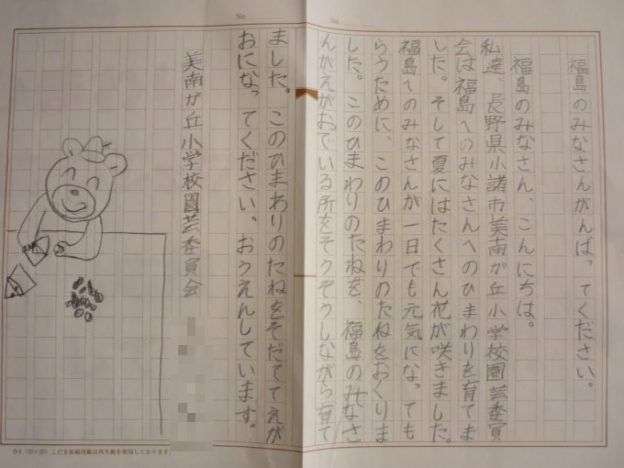 No.
No.
福島のみなさんがんばってください。
福島のみなさん、こんにちは。
私達、長野県小諸市美南が丘小学校園芸委員
会は福島へのみなさんへのひまわりを育てま
した。そして夏にはたくさん花が咲きました。
福島へのみなさんが一日でも元気になっても
らうために、このひまわりのたねをおくりま
した。このひまわりのたねを、福島のみなさ
んがえがおでいる所をそうぞうしながら育て
ました。このひまありのたねをそだててえが
おになってください。おうえんしています。
美南が丘小学校園芸委員会
B4(20×20)